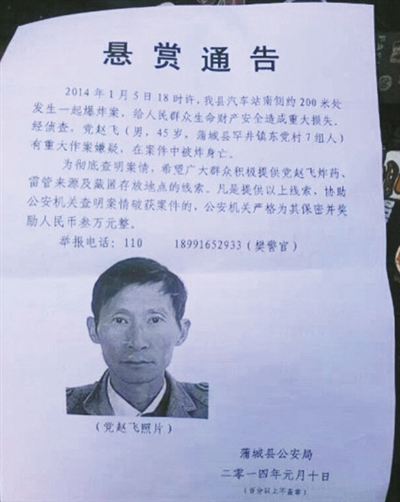 悬赏通告
2014年1月5日18时许,我县汽车站南侧约200米处
发生一起爆炸案,给人民群众生命财产安全造成重大损失。
经侦查,党赵飞(男,45岁,蒲城县罕井镇东党村7组人)
有重大作案嫌疑,在案件中被炸身亡。
为彻底查明案情,希望广大群众积极提供党赵飞炸药、
雷管来源及藏匿存放地点的线索。凡是提供以上线索,协助
公安机关查明案情破获案件的,公安机关严格为其保密并奖
励人民币叁万元整。
举报电话:110 18991652933(樊警官)
(党赵飞照片)
蒲城县公安局
二零一四年元月十日